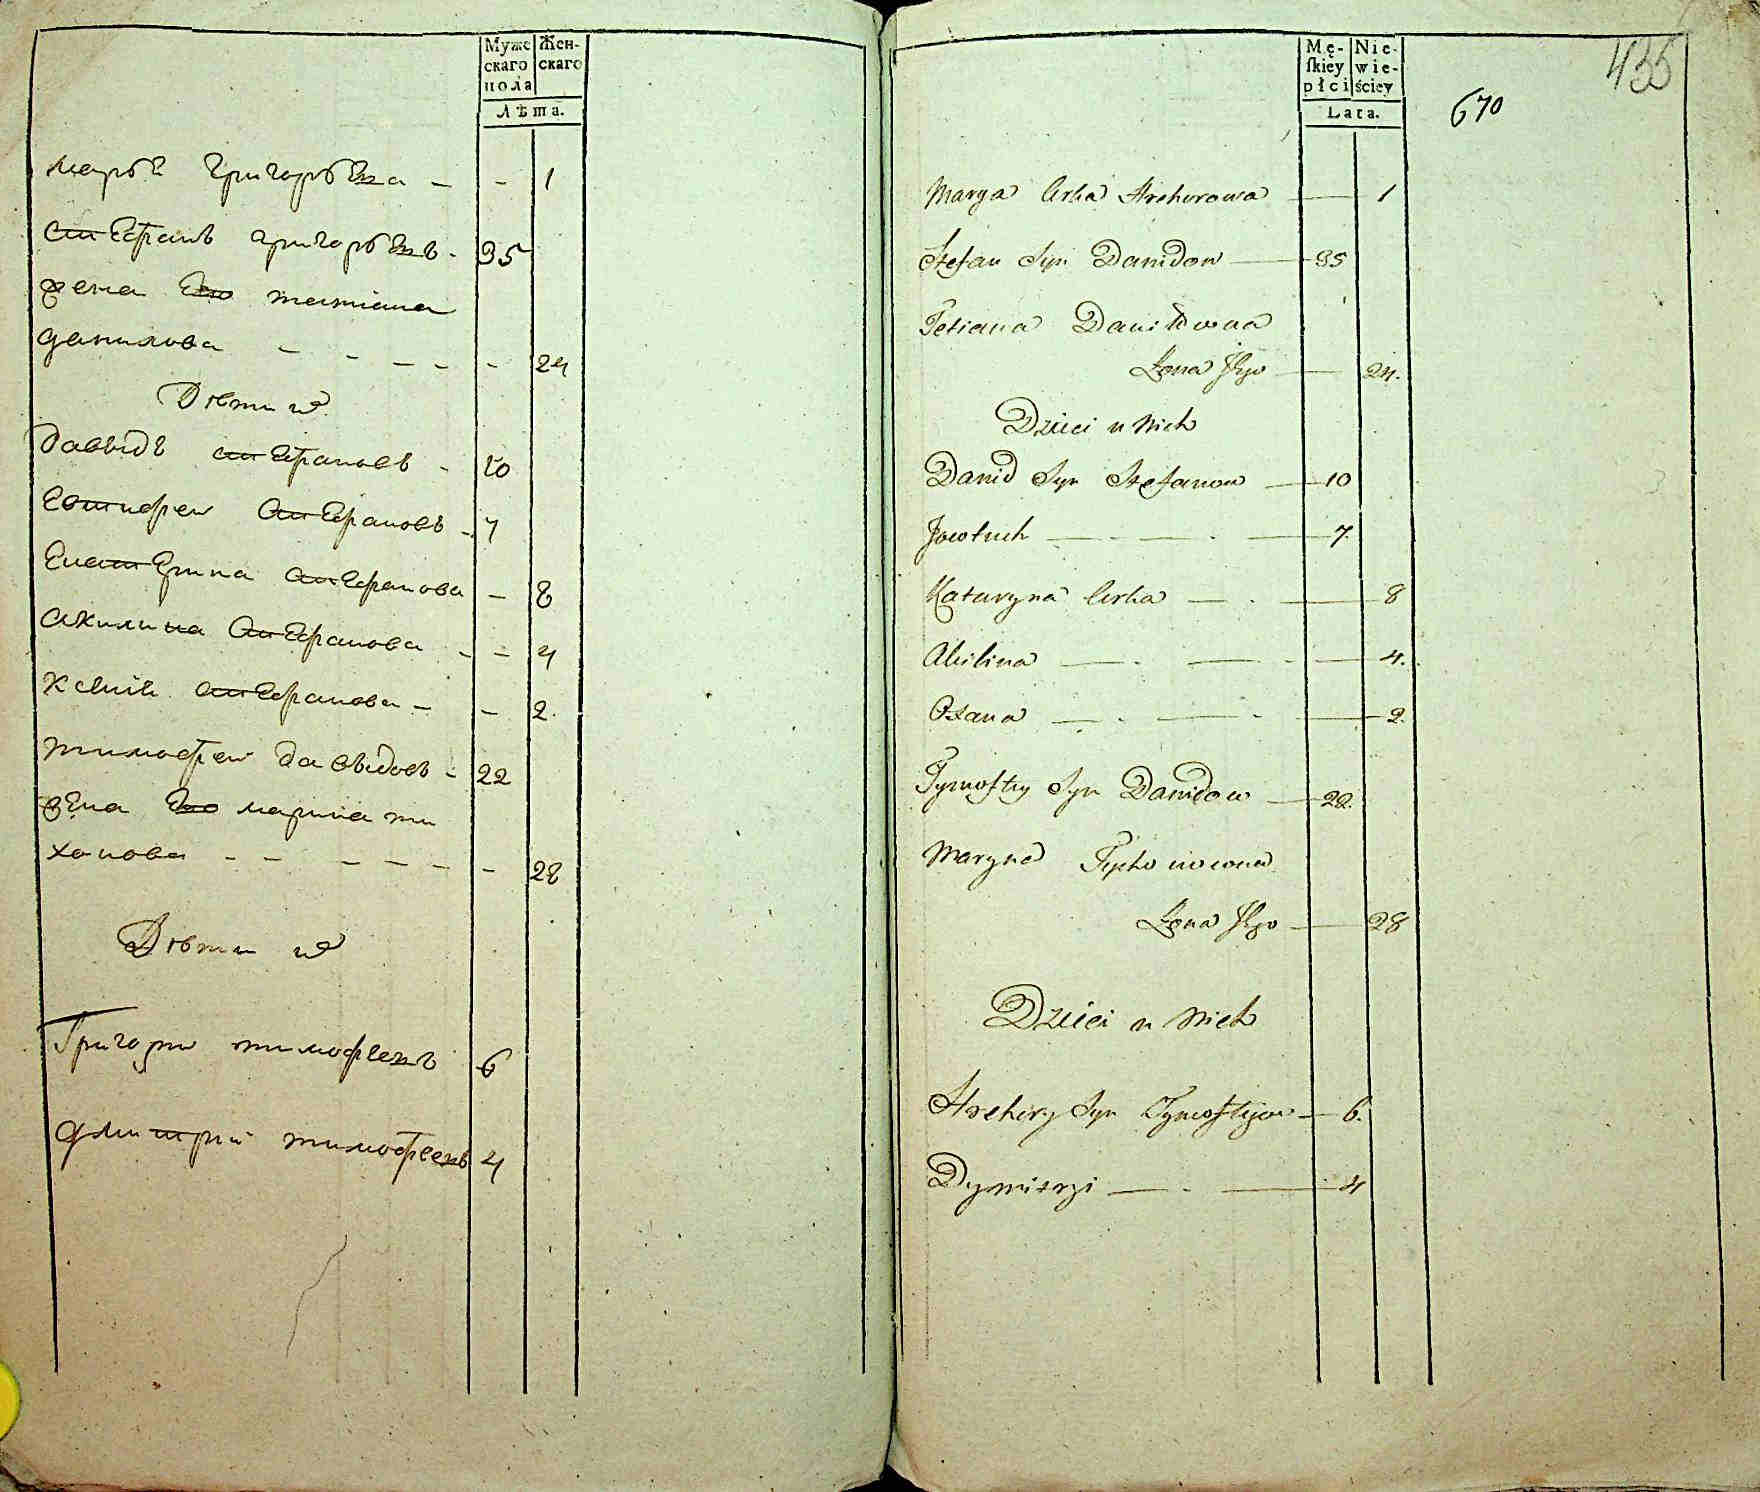 Муже Жен-
скаго скаго
пола
Лѣта.
марья григорьева - - 1
стефанъ григорьевъ - 35
жена его татиана
данилова - - - - - 24
Дѣти их
давыдъ стефановъ - 10
евтифей стефановъ - 7
екатерина стефанова - 8
акилина стефанова - - 4
ксения стефанова - - 2.
тимофей давыдовъ - 22
жена его марина ти
хонова - - - - - - 28
Дѣти их
Григори тимофеевъ 6
дмитрий тимофеевъ 4
Mę- Nie-
skiey wie-
płci ściey
Lata.
435
670
Marya Crka Hrehorowa — 1
Stefan Syn Dawidow — 35
Tetiana Daniłowna
Żona Jego — 24.
Dzieci u Nich
Dawid Syn Stefanow — 10
Jowtuch — - — - — 7.
Kataryna Crka — - — 8
Akilina — - — - — 4.
Oxana — - — - — 2.
Tymoftey Syn Dawidow — 22.
Maryna Tycho nowna
Żona Jego — 28
Dzieci u Nich
Hrehory Syn Tymoftijow — 6.
Dymitryi — - — 4